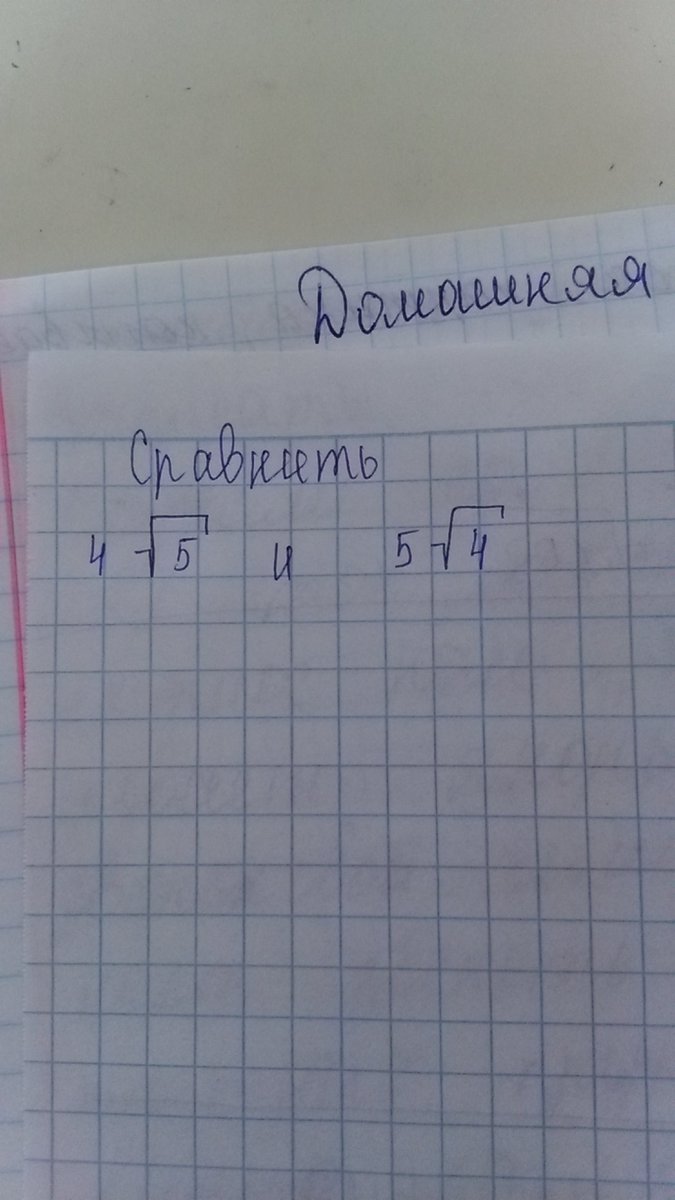 Домашняя
Сравнить
4 √5 и 5 √4